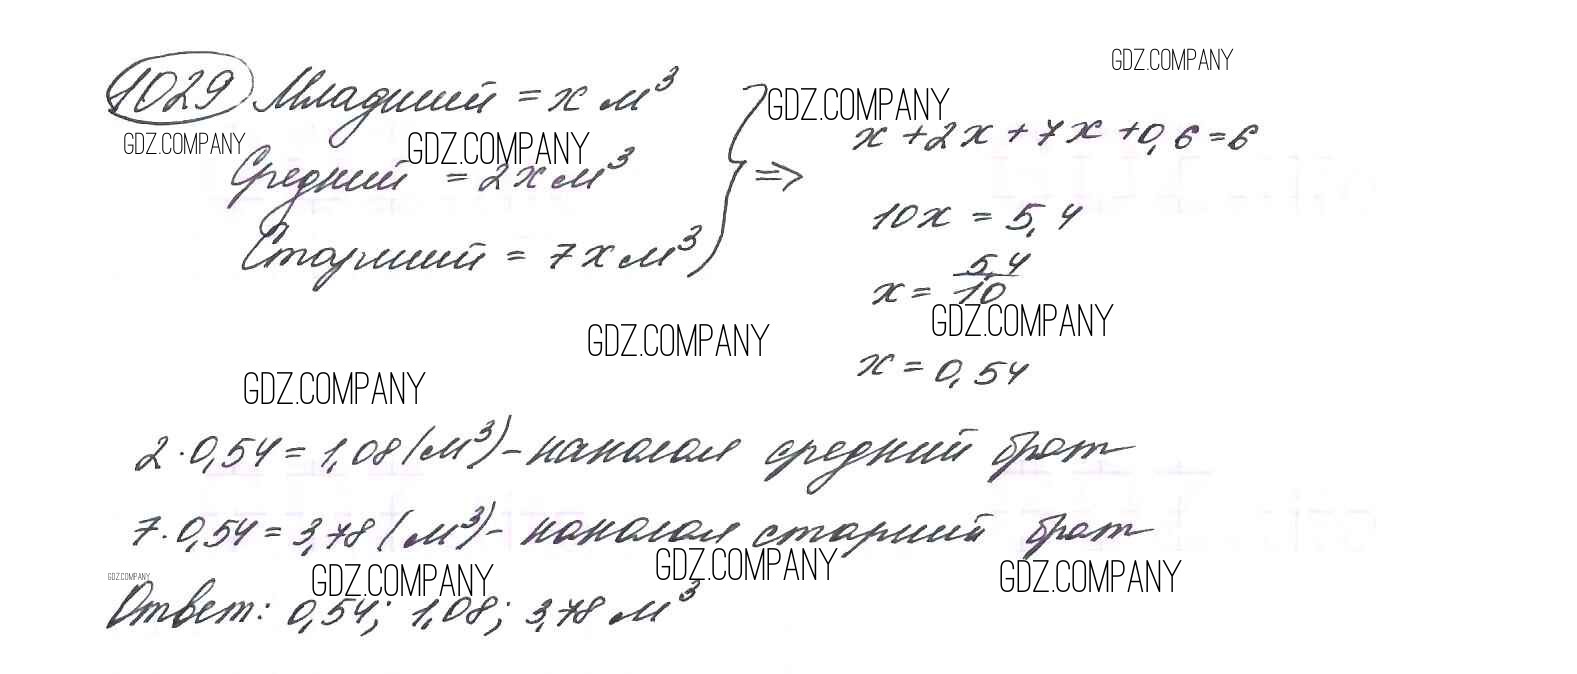 GDZ.COMPANY
1029 Младший = x м³
GDZ.COMPANY
x + 2x + 7x + 0,6 = 6
GDZ.COMPANY
GDZ.COMPANY
Средний = 2x м³
=>
10x = 5,4
Старший = 7x м³
x = 5,4/10
GDZ.COMPANY
GDZ.COMPANY
x = 0,54
GDZ.COMPANY
2 · 0,54 = 1,08 (м³) - наколол средний брат
7 · 0,54 = 3,78 (м³) - наколол старший брат
GDZ.COMPANY
GDZ.COMPANY
GDZ.COMPANY
GDZ.COMPANY
Ответ: 0,54; 1,08; 3,78 м³